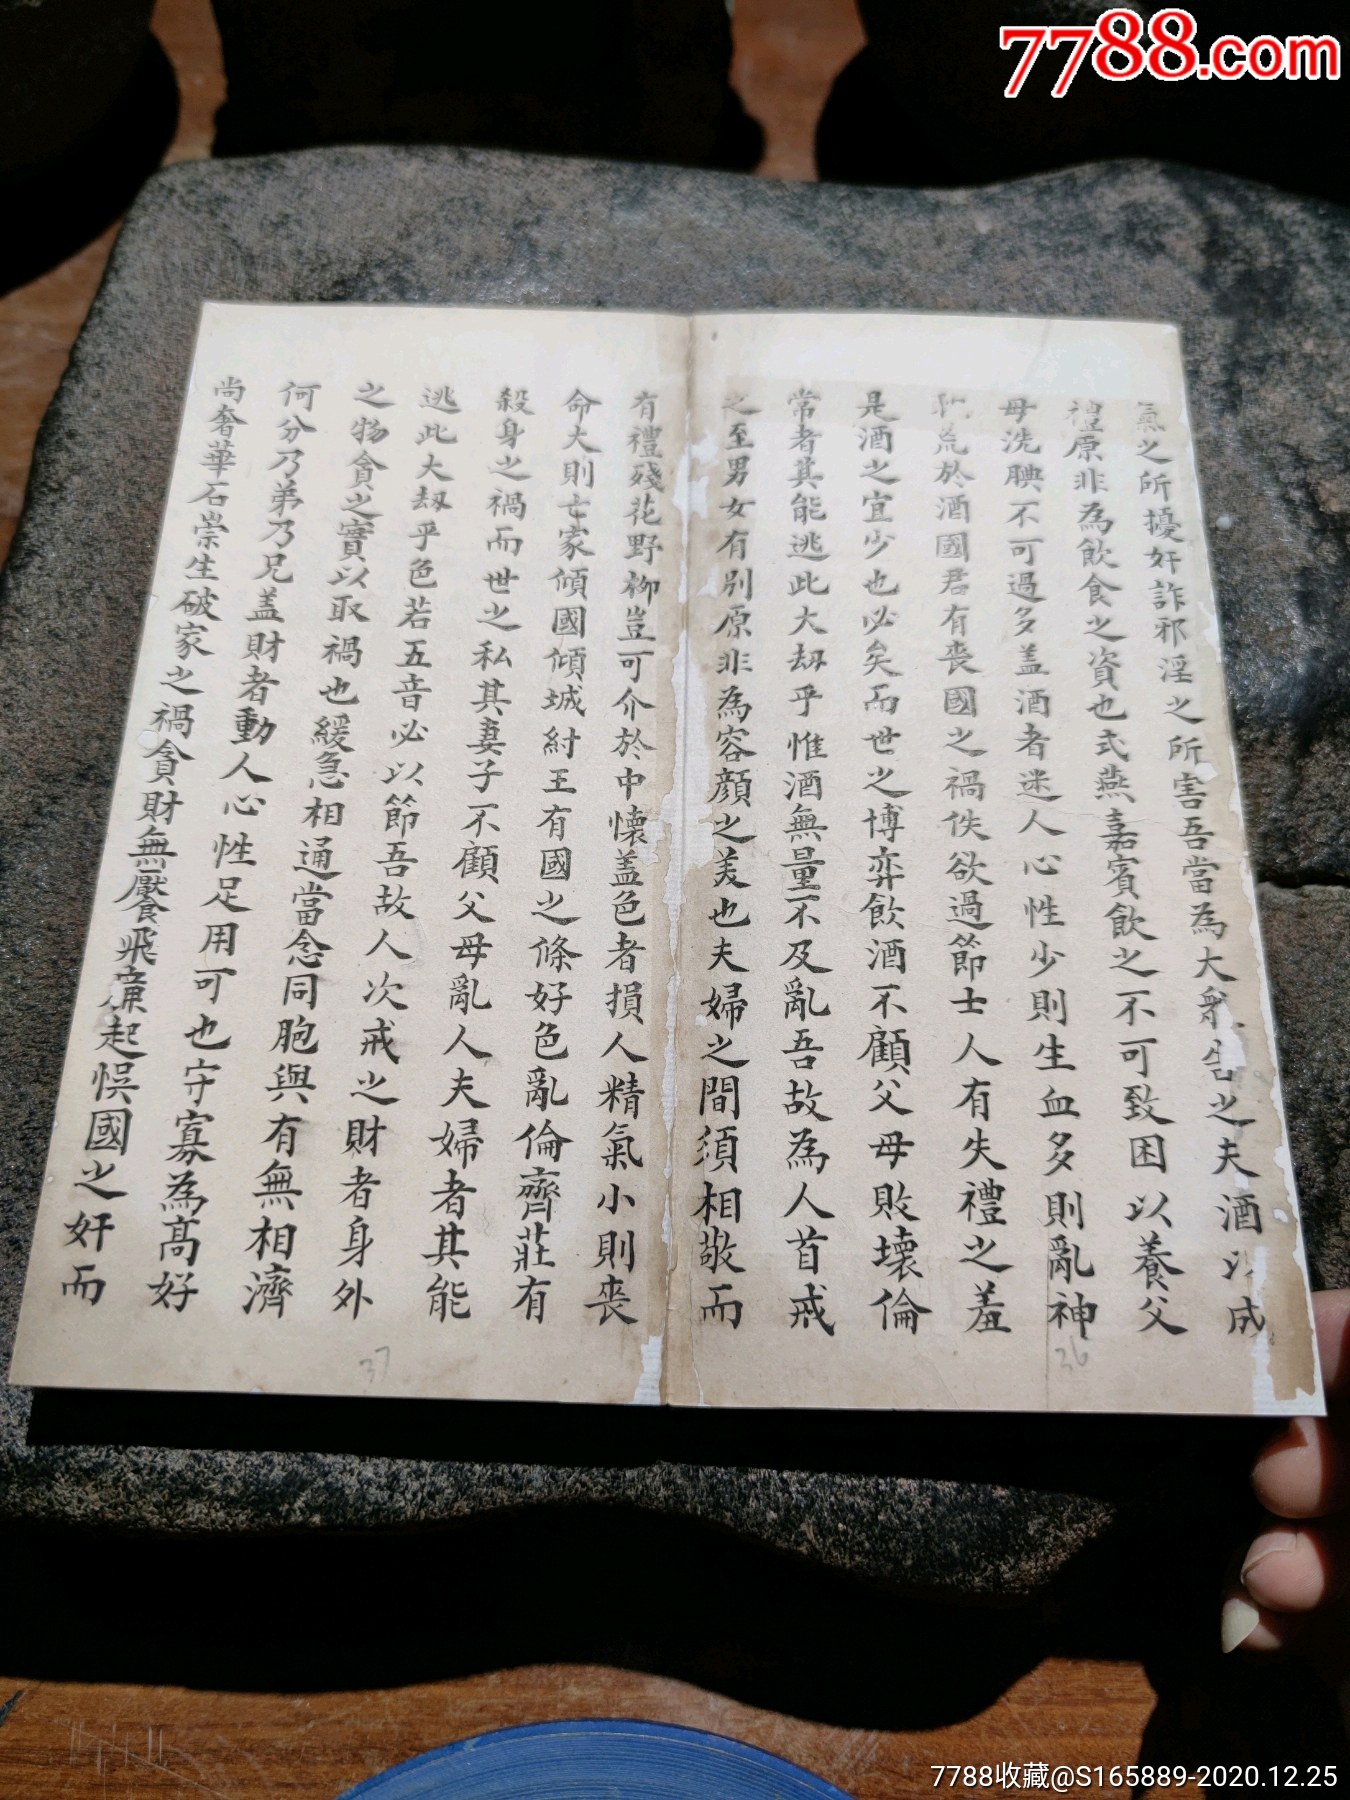 7788.com
氣之所擾奸詐邪淫之所害吾當為大衆告之夫酒以成
禮原非為飲食之資也式燕嘉賓飲之不可致困以養父
母洗腆不可過多盖酒者迷人心性少則生血多則亂神
荒於酒國君有喪國之禍佚欲過節士人有失禮之羞
是酒之宜少也必矣而世之博弈飲酒不顧父母敗壞倫
常者其能逃此大刼乎惟酒無量不及亂吾故為人首戒
之至男女有别原非為容顔之美也夫婦之間須相敬而
有禮殘花野柳豈可介於中懷盖色者損人精氣小則喪
命大則亡家傾國傾城紂王有國之條好色亂倫齊莊有
殺身之禍而世之私其妻子不顧父母亂人夫婦者其能
逃此大刼乎色若五音必以節吾故人次戒之財者身外
之物貪之實以取禍也緩急相通當念同胞與有無相濟
何分乃弟乃兄盖財者動人心性足用可也守寡為高好
尚奢華石崇生破家之禍貪財無厭飛廉起悞國之奸而
36
37
7788收藏@S165889-2020.12.25